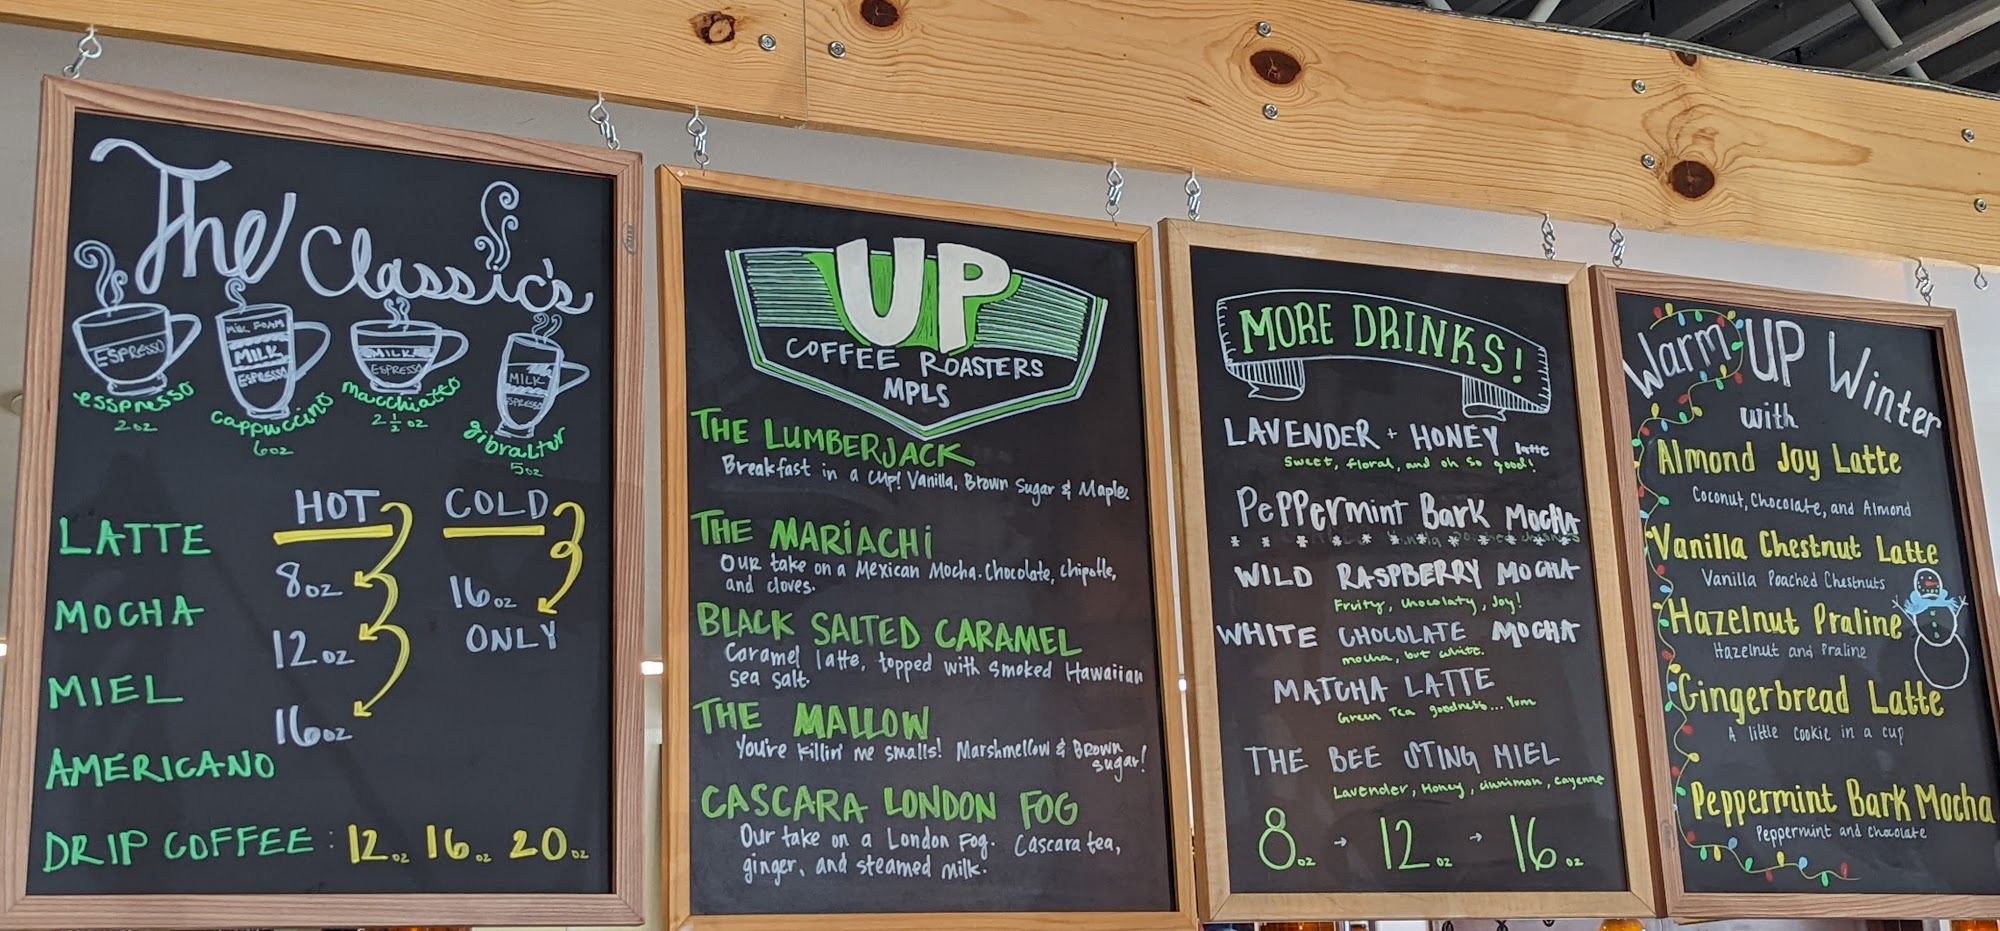 The Classic's
ESPRESSO
esspresso
2oz
MILK FOAM
MILK
ESPRESSO
cappuccino
6oz
MILK
ESPRESSO
macchiatto
2 1/2 oz
MILK
ESPRESSO
gibraltur
5oz
HOT
8oz
12oz
16oz
COLD
16oz
ONLY
LATTE
MOCHA
MIEL
AMERICANO
DRIP COFFEE: 12oz 16oz 20oz
UP
COFFEE ROASTERS
MPLS
THE LUMBERJACK
Breakfast in a cup! Vanilla, Brown Sugar & Maple.
THE MARIACHI
Our take on a Mexican Mocha. Chocolate, chipotle,
and cloves.
BLACK SALTED CARAMEL
Caramel latte, topped with smoked Hawaiian
sea salt.
THE MALLOW
You're killin' me smalls! Marshmellow & Brown
sugar!
CASCARA LONDON FOG
Our take on a London Fog. Cascara tea,
ginger, and steamed milk.
MORE DRINKS!
LAVENDER + HONEY latte
Sweet, floral, and oh so good!
Peppermint Bark MOCHA
* * * * * * * * * * *
WILD RASPBERRY MOCHA
Fruity, chocolaty, Joy!
WHITE CHOCOLATE MOCHA
mocha, but white.
MATCHA LATTE
Green Tea goodness... Yum
THE BEE STING MIEL
Lavender, Honey, cinnimon, cayenne
8oz → 12oz → 16oz
Warm UP Winter
with
Almond Joy Latte
Coconut, Chocolate, and Almond
Vanilla Chestnut Latte
Vanilla Poached Chestnuts
Hazelnut Praline
Hazelnut and Praline
Gingerbread Latte
A little cookie in a cup
Peppermint Bark Mocha
Peppermint and chocolate